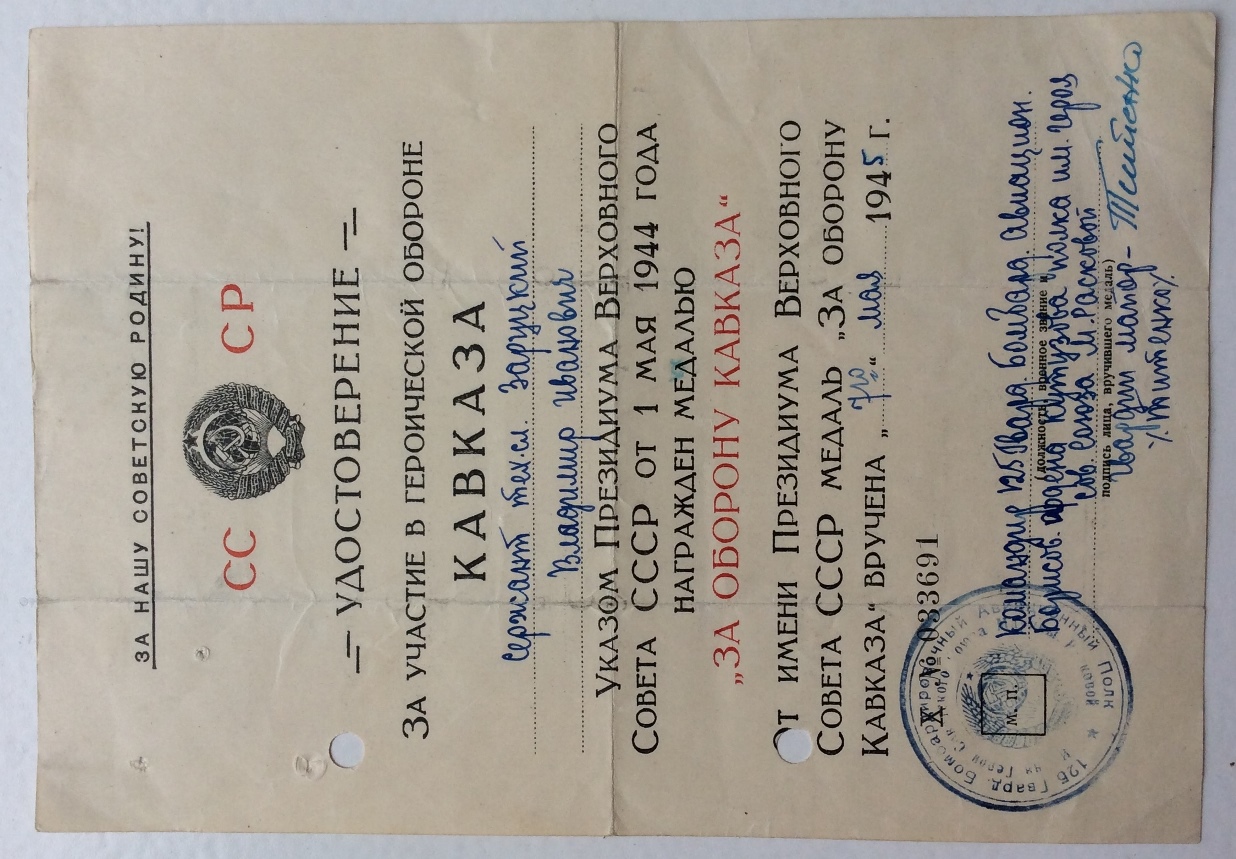 ЗА НАШУ СОВЕТСКУЮ РОДИНУ!
СС СР
УДОСТОВЕРЕНИЕ
ЗА УЧАСТИЕ В ГЕРОИЧЕСКОЙ ОБОРОНЕ
КАВКАЗА
сержант тех.сл. Заруцкий
Владимир Иванович
УКАЗОМ ПРЕЗИДИУМА ВЕРХОВНОГО
СОВЕТА СССР ОТ 1 МАЯ 1944 ГОДА
НАГРАЖДЕН МЕДАЛЬЮ
„ЗА ОБОРОНУ КАВКАЗА“
ОТ ИМЕНИ ПРЕЗИДИУМА ВЕРХОВНОГО
СОВЕТА СССР МЕДАЛЬ „ЗА ОБОРОНУ
КАВКАЗА“ ВРУЧЕНА „ “ мая 1945 г.
№ 033691
Командир 125 Гвард. Бомбард. Авиацион.
Борисов. ордена Кутузова полка им. героя
(должность, воинское звание и
сов. союза М. Расковой
подпись лица, вручившего медаль)
Гвардии майор-
/Титенко/
М. П.
125 Гвард. Бомбардировочный Авиационный Полк